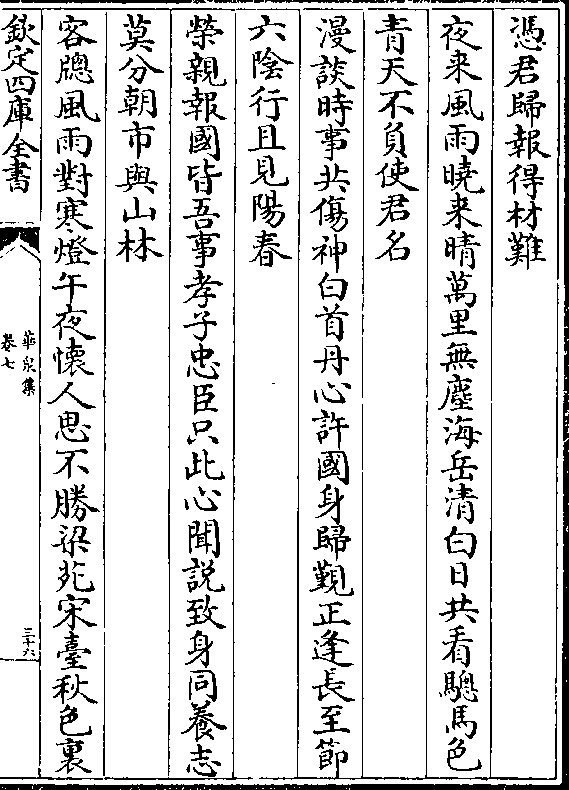 憑君歸報得材難
夜来風雨曉来晴萬里無塵海岳清白日共看驄馬色
青天不負使君名
漫談時事共傷神白首丹心許國身歸覲正逢長至節
六陰行且見陽春
榮親報國皆吾事孝子忠臣只此心聞說致身同養志
莫分朝市與山林
客牕風雨對寒燈午夜懷人思不勝梁苑宋臺秋色裏
欽定四庫全書
華泉集
卷七
三十六